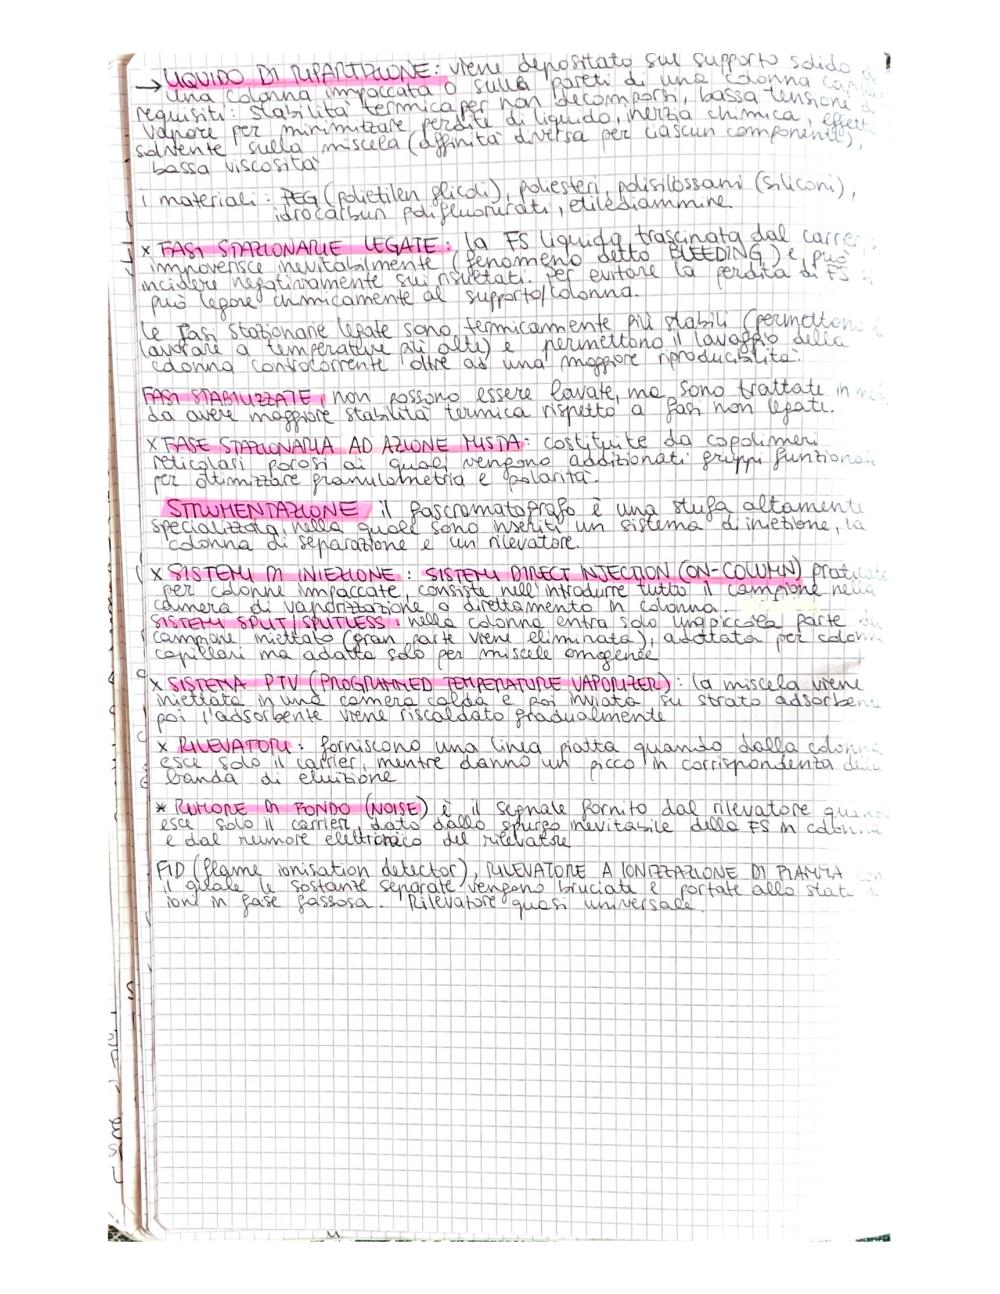 → LIQUIDO DI RIPARTIZIONE: viene depositato sul supporto solido
una colonna impaccata o sulle pareti di una colonna
requisiti: stabilità termica per non decomporsi, bassa tensione di
vapore per minimizzare perdite di liquido, inerzia chimica, effetto
solvente sulla miscela (affinità diversa per ciascun componente),
bassa viscosità
i materiali: PEG (polietilen glicoli), poliesteri, polisilossani (siliconi),
idrocarburi polifluorurati, etilediammine.
x FASI STAZIONARIE LEGATE: la FS liquida trascinata dal carrier
impoverisce inevitabilmente (fenomeno detto BLEEDING) e può
incidere negativamente sui risultati. per evitare la perdita di FS si
può legare chimicamente al supporto/colonna.
Le fasi stazionarie legate sono termicamente più stabili (permettono
lavorare a temperature più alte) e permettono il lavaggio della
colonna controcorrente oltre ad una maggiore riproducibilità.
FASI STABILIZZATE, non possono essere lavate, ma sono trattate in
da avere maggiore stabilità termica rispetto a fasi non legate.
x FASE STAZIONARIA AD AZIONE MISTA: costituite da copolimeri
reticolari porosi ai quali vengono additionati gruppi funzionali
per ottimizzare granulometria e polarità.
STRUMENTAZIONE il gascromatografo è una stufa altamente
specializzata nella quale sono inseriti un sistema di iniezione, la
colonna di separazione e un rilevatore.
x SISTEMI DI INIEZIONE: SISTEMI DIRECT INJECTION (ON-COLUMN) praticate
per colonne impaccate, consiste nell'introdurre tutto il campione nella
camera di vaporizzazione o direttamento in colonna.
SISTEMI SPLIT/SPLITLESS: nella colonna entra solo una piccola parte di
campione iniettato (gran parte viene eliminata), adottata per colonne
capillari ma adatta solo per miscele omogenee
x SISTEMA PTV (PROGRAMMED TEMPERATURE VAPORIZER): la miscela viene
iniettata in una camera calda e poi inviata su strato adsorbente
poi l'adsorbente viene riscaldato gradualmente
x RILEVATORI: forniscono una linea piatta quando dalla colonna
esce solo il carrier, mentre danno un picco in corrispondenza della
banda di eluizione
* RUMORE DI FONDO (NOISE) è il segnale fornito dal rilevatore quando
esce solo il carrier, dato dallo spurgo inevitabile della FS in colonna
e dal rumore elettronico del rilevatore
FID (flame ionisation detector), RILEVATORE A IONIZZAZIONE DI FIAMMA con
il quale le sostanze separate vengono bruciate e portate allo stato di
ioni in fase gassosa. Rilevatore quasi universale.